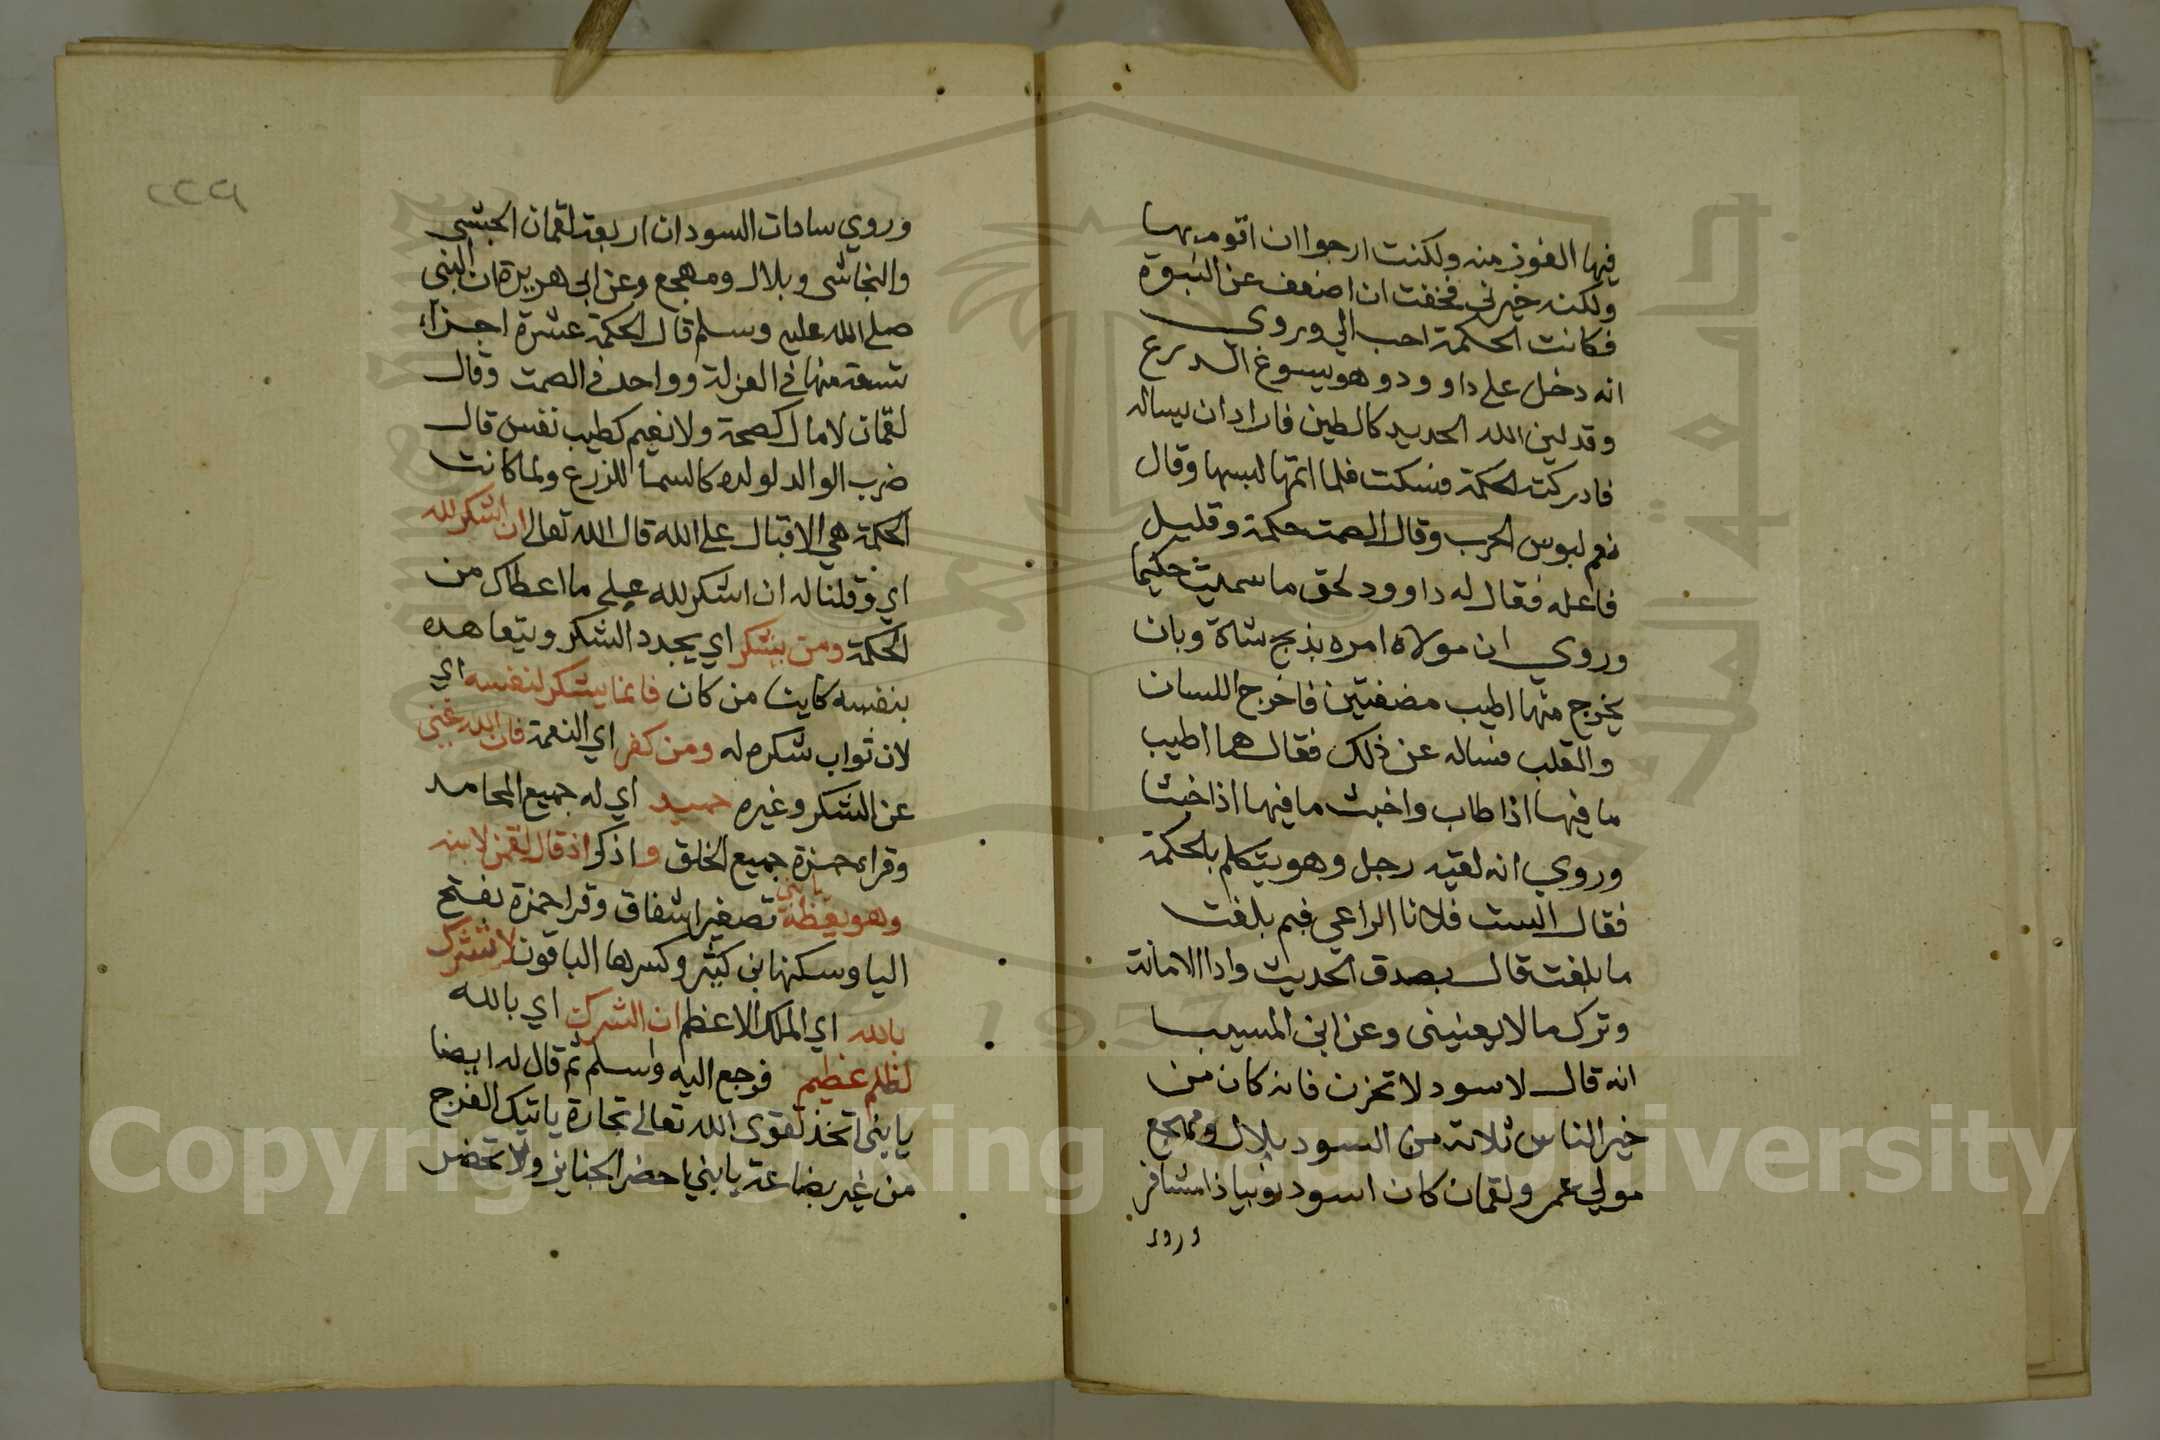 فيها الفوز منه ولكنت ارجوا ان اقوم بها
ولكنه خيرني فخفت ان اضعف عن النبوة
فكانت الحكمة احب الي وروي
انه دخل على داوود وهو يسوغ الدرع
وقد لين الله الحديد كالطين فاراد ان يساله
فادركته الحكمة فسكت فلما اتمها لبسها وقال
نعم لبوس الحرب وقال الصمت حكمة وقليل
فاعله فقال له داوود لحق ما سميت حكيما
وروي ان مولاه امره بذبح شاة وبان
يخرج منها اطيب مضغتين فاخرج اللسان
والقلب فساله عن ذلك فقال هما اطيب
ما فيها اذا طاب واخبث ما فيها اذا خبثا
وروي انه لقيه رجل وهو يتكلم بالحكمة
فقال الست فلانا الراعي فبم بلغت
ما بلغت قال بصدق الحديث وادا الامانة
وترك ما لا يعنيني وعن ابن المسيب
انه قال لاسود لا تحزن فانه كان من
خير الناس ثلاثة من السود بلال ومهجع
مولي عمر ولقمان كان اسود نوبيا ذا مشافر
وروي
وروي سادات السودان اربعة لقمان الحبشي
والنجاشي وبلال ومهجع وعن ابي هريرة ان النبي
صلى الله عليه وسلم قال الحكمة عشرة اجزاء
تسعة منها في العزلة وواحد في الصمت وقال
لقمان لا مال كصحة ولا نعيم كطيب نفس قال
ضرب الوالد لولده كالسما للزرع ولما كانت
الحكمة هي الاقبال على الله قال الله تعالى ان اشكر لله
اي وقلنا له ان اشكر لله على ما اعطاك من
الحكمة ومن يشكر اي يجدد الشكر ويتعاهده
بنفسه كاينا من كان فانما يشكر لنفسه اي
لان ثواب شكره له ومن كفر اي النعمة فان الله غني
عن الشكر وغيره حميد اي له جميع المحامد
وقراء حمزة جميع الخلق و اذكر اذ قال لقمن لابنه
وهو يعظه يا بني تصغير اشفاق وقرا حمزة بفتح
اليا وسكنها بن كثير وكسرها الباقون لا تشرك
بالله اي الملك الاعظم ان الشرك اي بالله
لظلم عظيم فرجع اليه واسلم ثم قال له ايضا
يا بني اتخذ تقوى الله تعالى تجارة ياتيك الفرج
من غير بضاعة يا بني احضر الجنايز ولا تحضر
Copyright © King Saud University
جامعة الملك سعود
1957